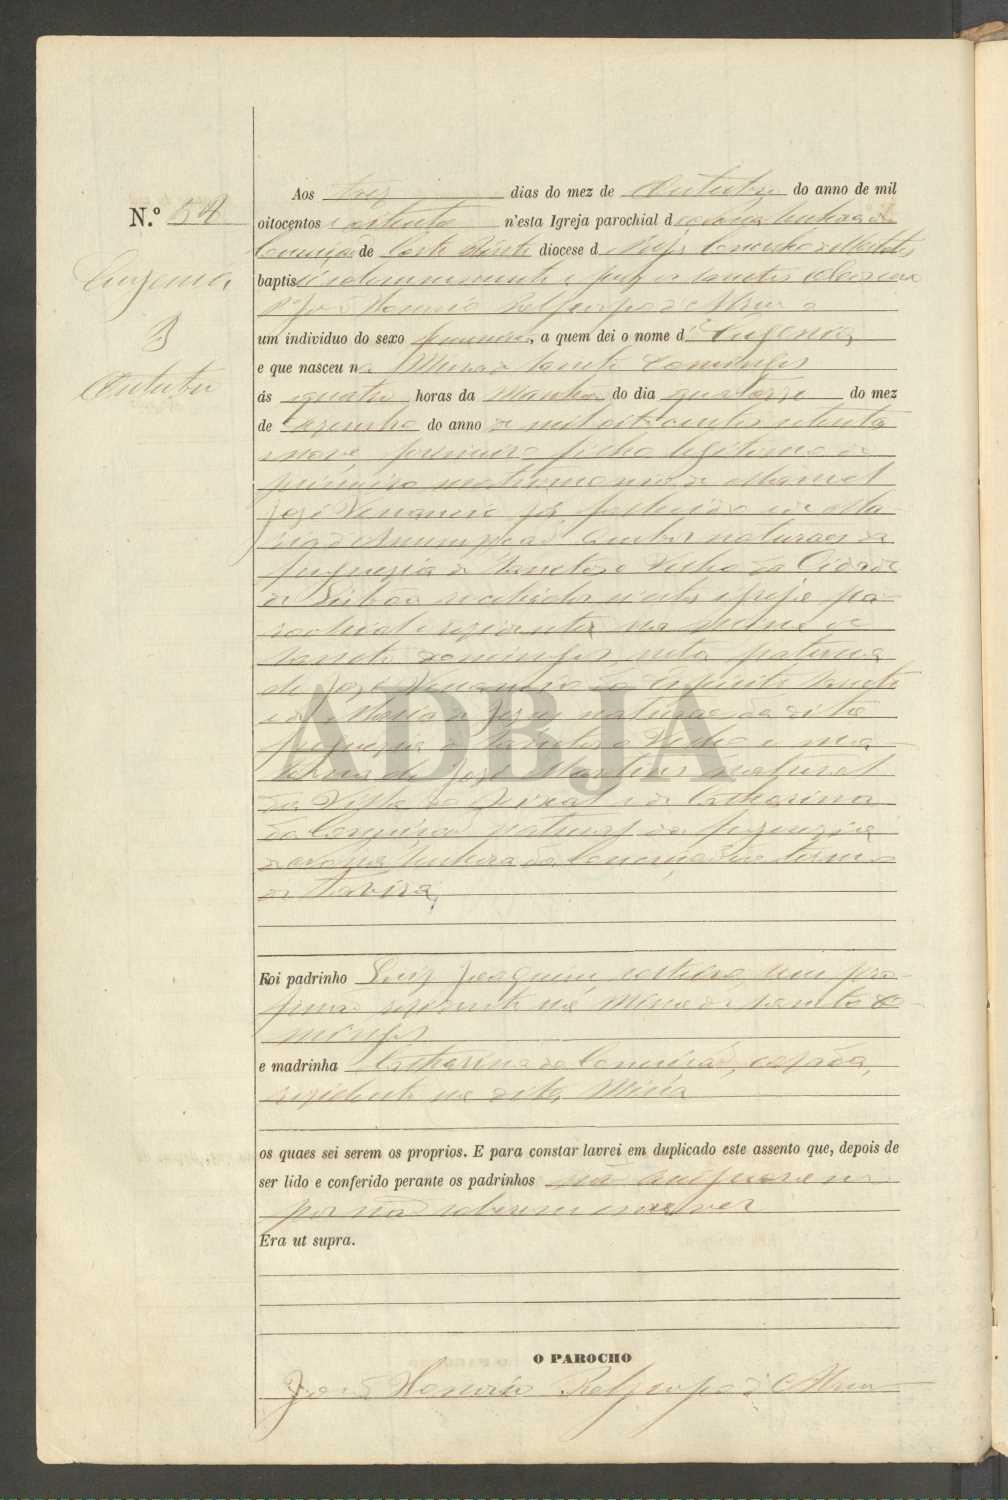 N.º 58
Eugenia
3
Outubro
Aos tres dias do mez de Outubro do anno de mil
oitocentos e oitenta n'esta Igreja parochial d Senhora da
Conceição de Corte do Pinto diocese d Beja Concelho de Mertola
baptisei solemnemente e puz os sanctos oleos
um individuo do sexo feminino, a quem dei o nome d' Eugenia,
e que nasceu na Mina de Sancto Domingos
ás quatro horas da Manhã do dia quatorze do mez
de Dezembro do anno de mil oitocentos setenta
e nove, primeiro filho legitimo de
primeiro matrimonio de Manoel
José Venancio já fallecido e de Ma
ria d'Assumpção ambos naturaes da
freguezia de Sanctos o Velho da Cidade
de Lisboa recebidos n'esta igreja pa-
rochial e rezidentes na Mina de
Sancto Domingos, neta paterna
de José Venancio do Espirito Sancto
e de Maria de Jezus naturaes da dita
freguezia de Sanctos o Velho e ma
terna de José Martins natural
da Villa do Seixal e de Catharina
da Conceição natural da freguezia
de Nossa Senhora da Conceição termo
de Tavira,
Foi padrinho Luiz Joaquim solteiro
rezidente na Mina de Sancto Do
mingos
e madrinha Catharina da Conceição, casada,
rezidente na dita Mina
os quaes sei serem os proprios. E para constar lavrei em duplicado este assento que, depois de
ser lido e conferido perante os padrinhos não assignarem
por não saberem escrever
Era ut supra.
O PAROCHO
ADBJA